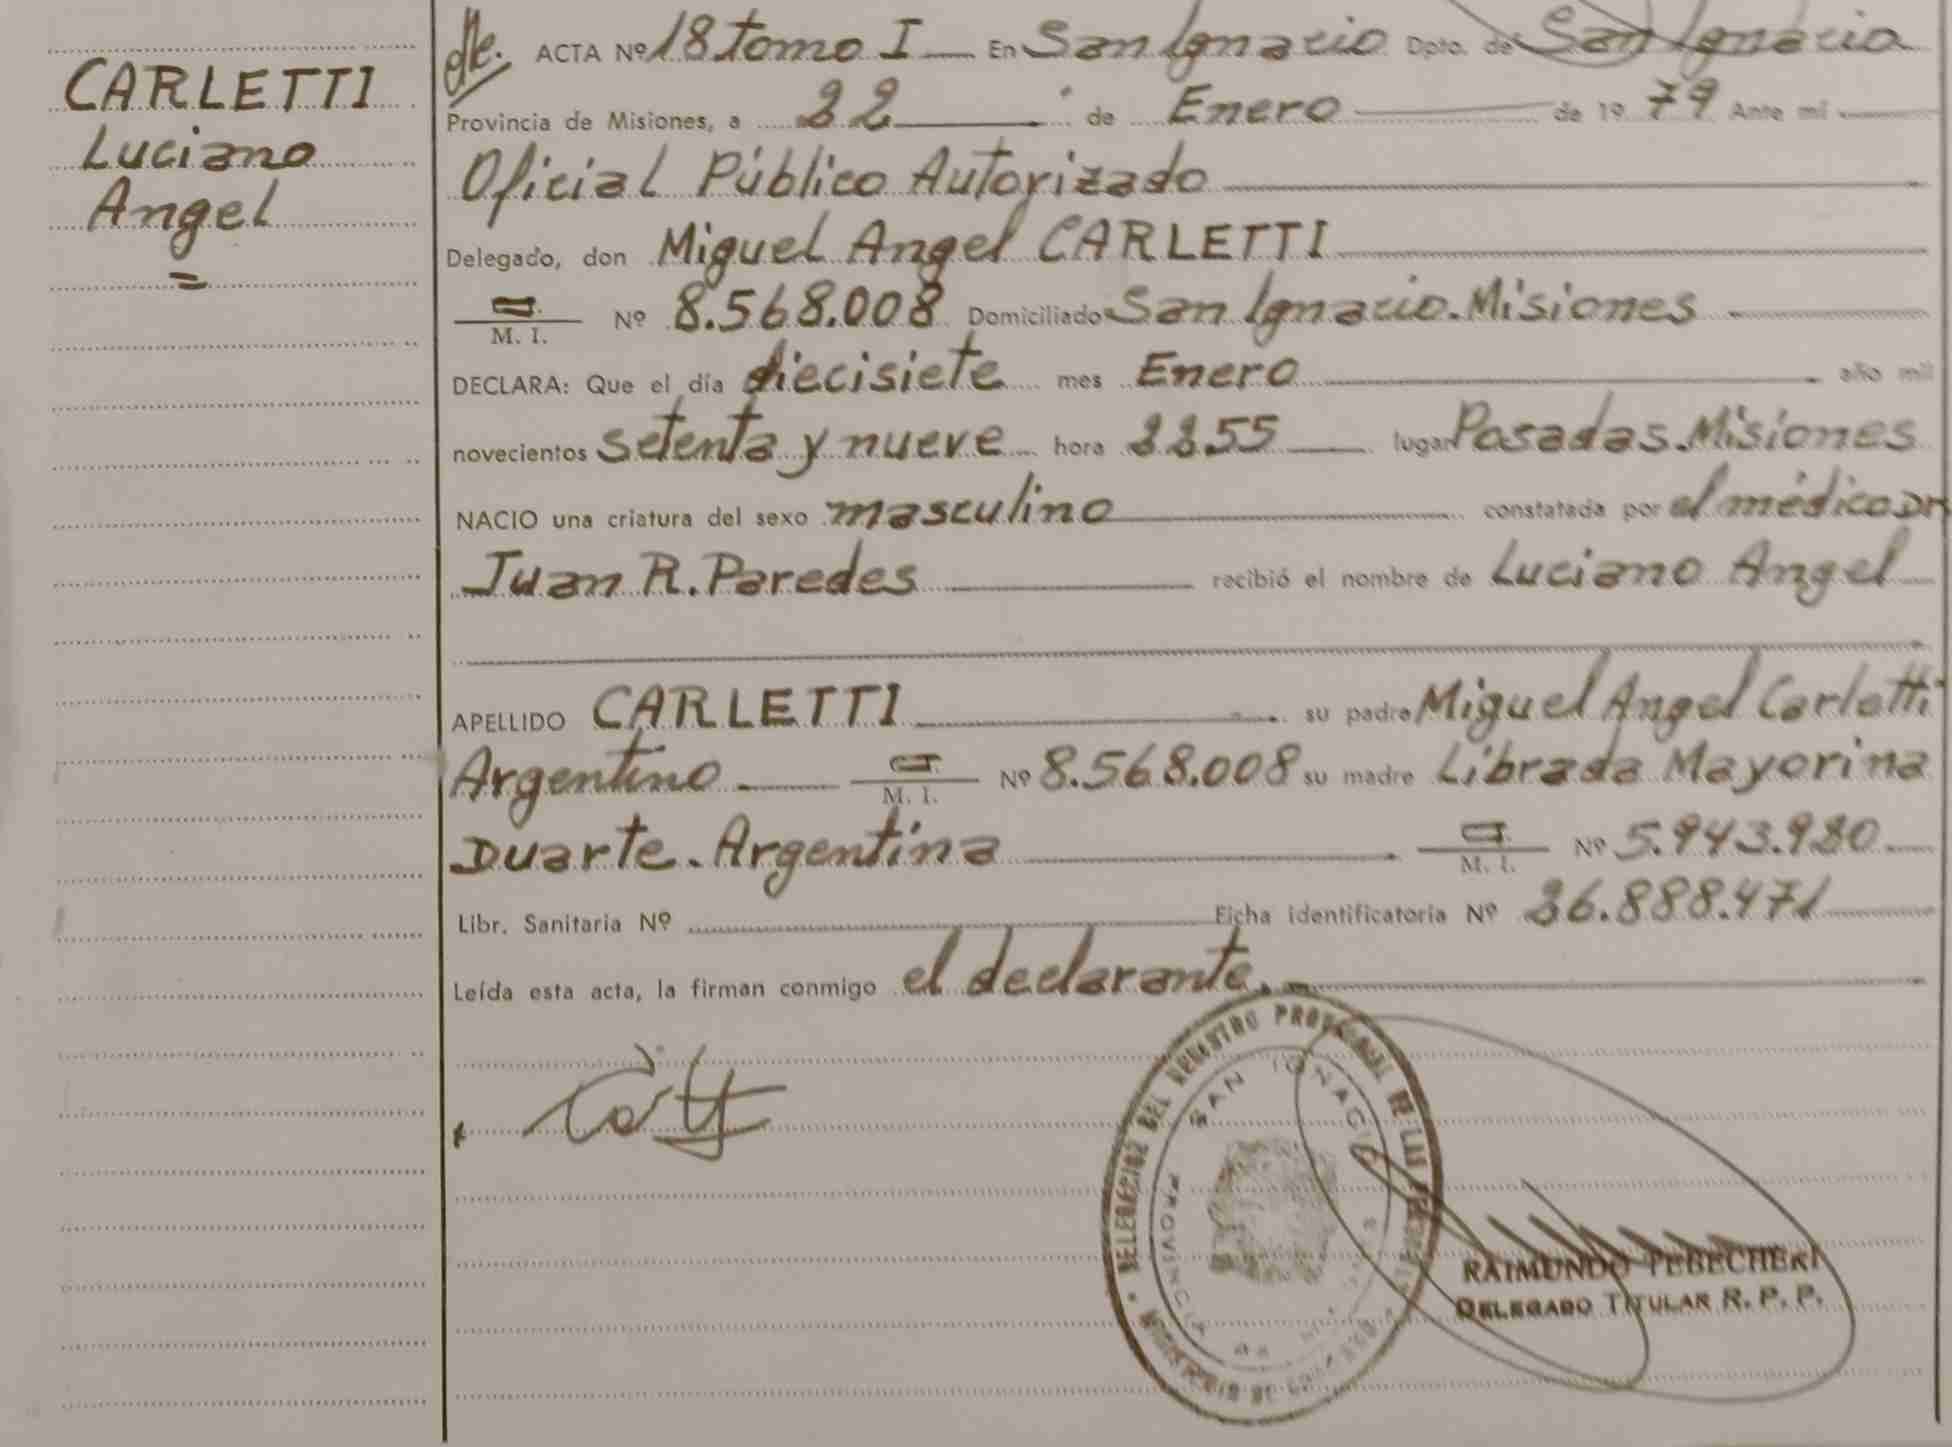 CARLETTI
Luciano
Angel
=
ACTA Nº 18 tomo I En San Ignacio Dpto. de San Ignacio
Provincia de Misiones, a 22 de Enero de 1979 Ante mi
Oficial Público Autorizado
Delegado, don Miguel Angel CARLETTI
M. I. Nº 8.568.008 Domiciliado San Ignacio. Misiones
DECLARA: Que el día diecisiete mes Enero año mil
novecientos setenta y nueve hora 2255 lugar Posadas. Misiones
NACIO una criatura del sexo masculino constatada por el médico Dr
Juan R. Paredes recibió el nombre de Luciano Angel
APELLIDO CARLETTI su padre Miguel Angel Carletti
Argentino M. I. Nº 8.568.008 su madre Librada Mayorina
Duarte. Argentina M. I. Nº 5.943.980
Libr. Sanitaria Nº Ficha identificatoria Nº 26.888.471
Leída esta acta, la firman conmigo el declarante.
DELEGACION DEL REGISTRO PROVINCIAL DE LAS PERSONAS
SAN IGNACIO
PROVINCIA DE
MINISTERIO DE GOBIERNO
RAIMUNDO
DELEGADO TITULAR R. P. P.